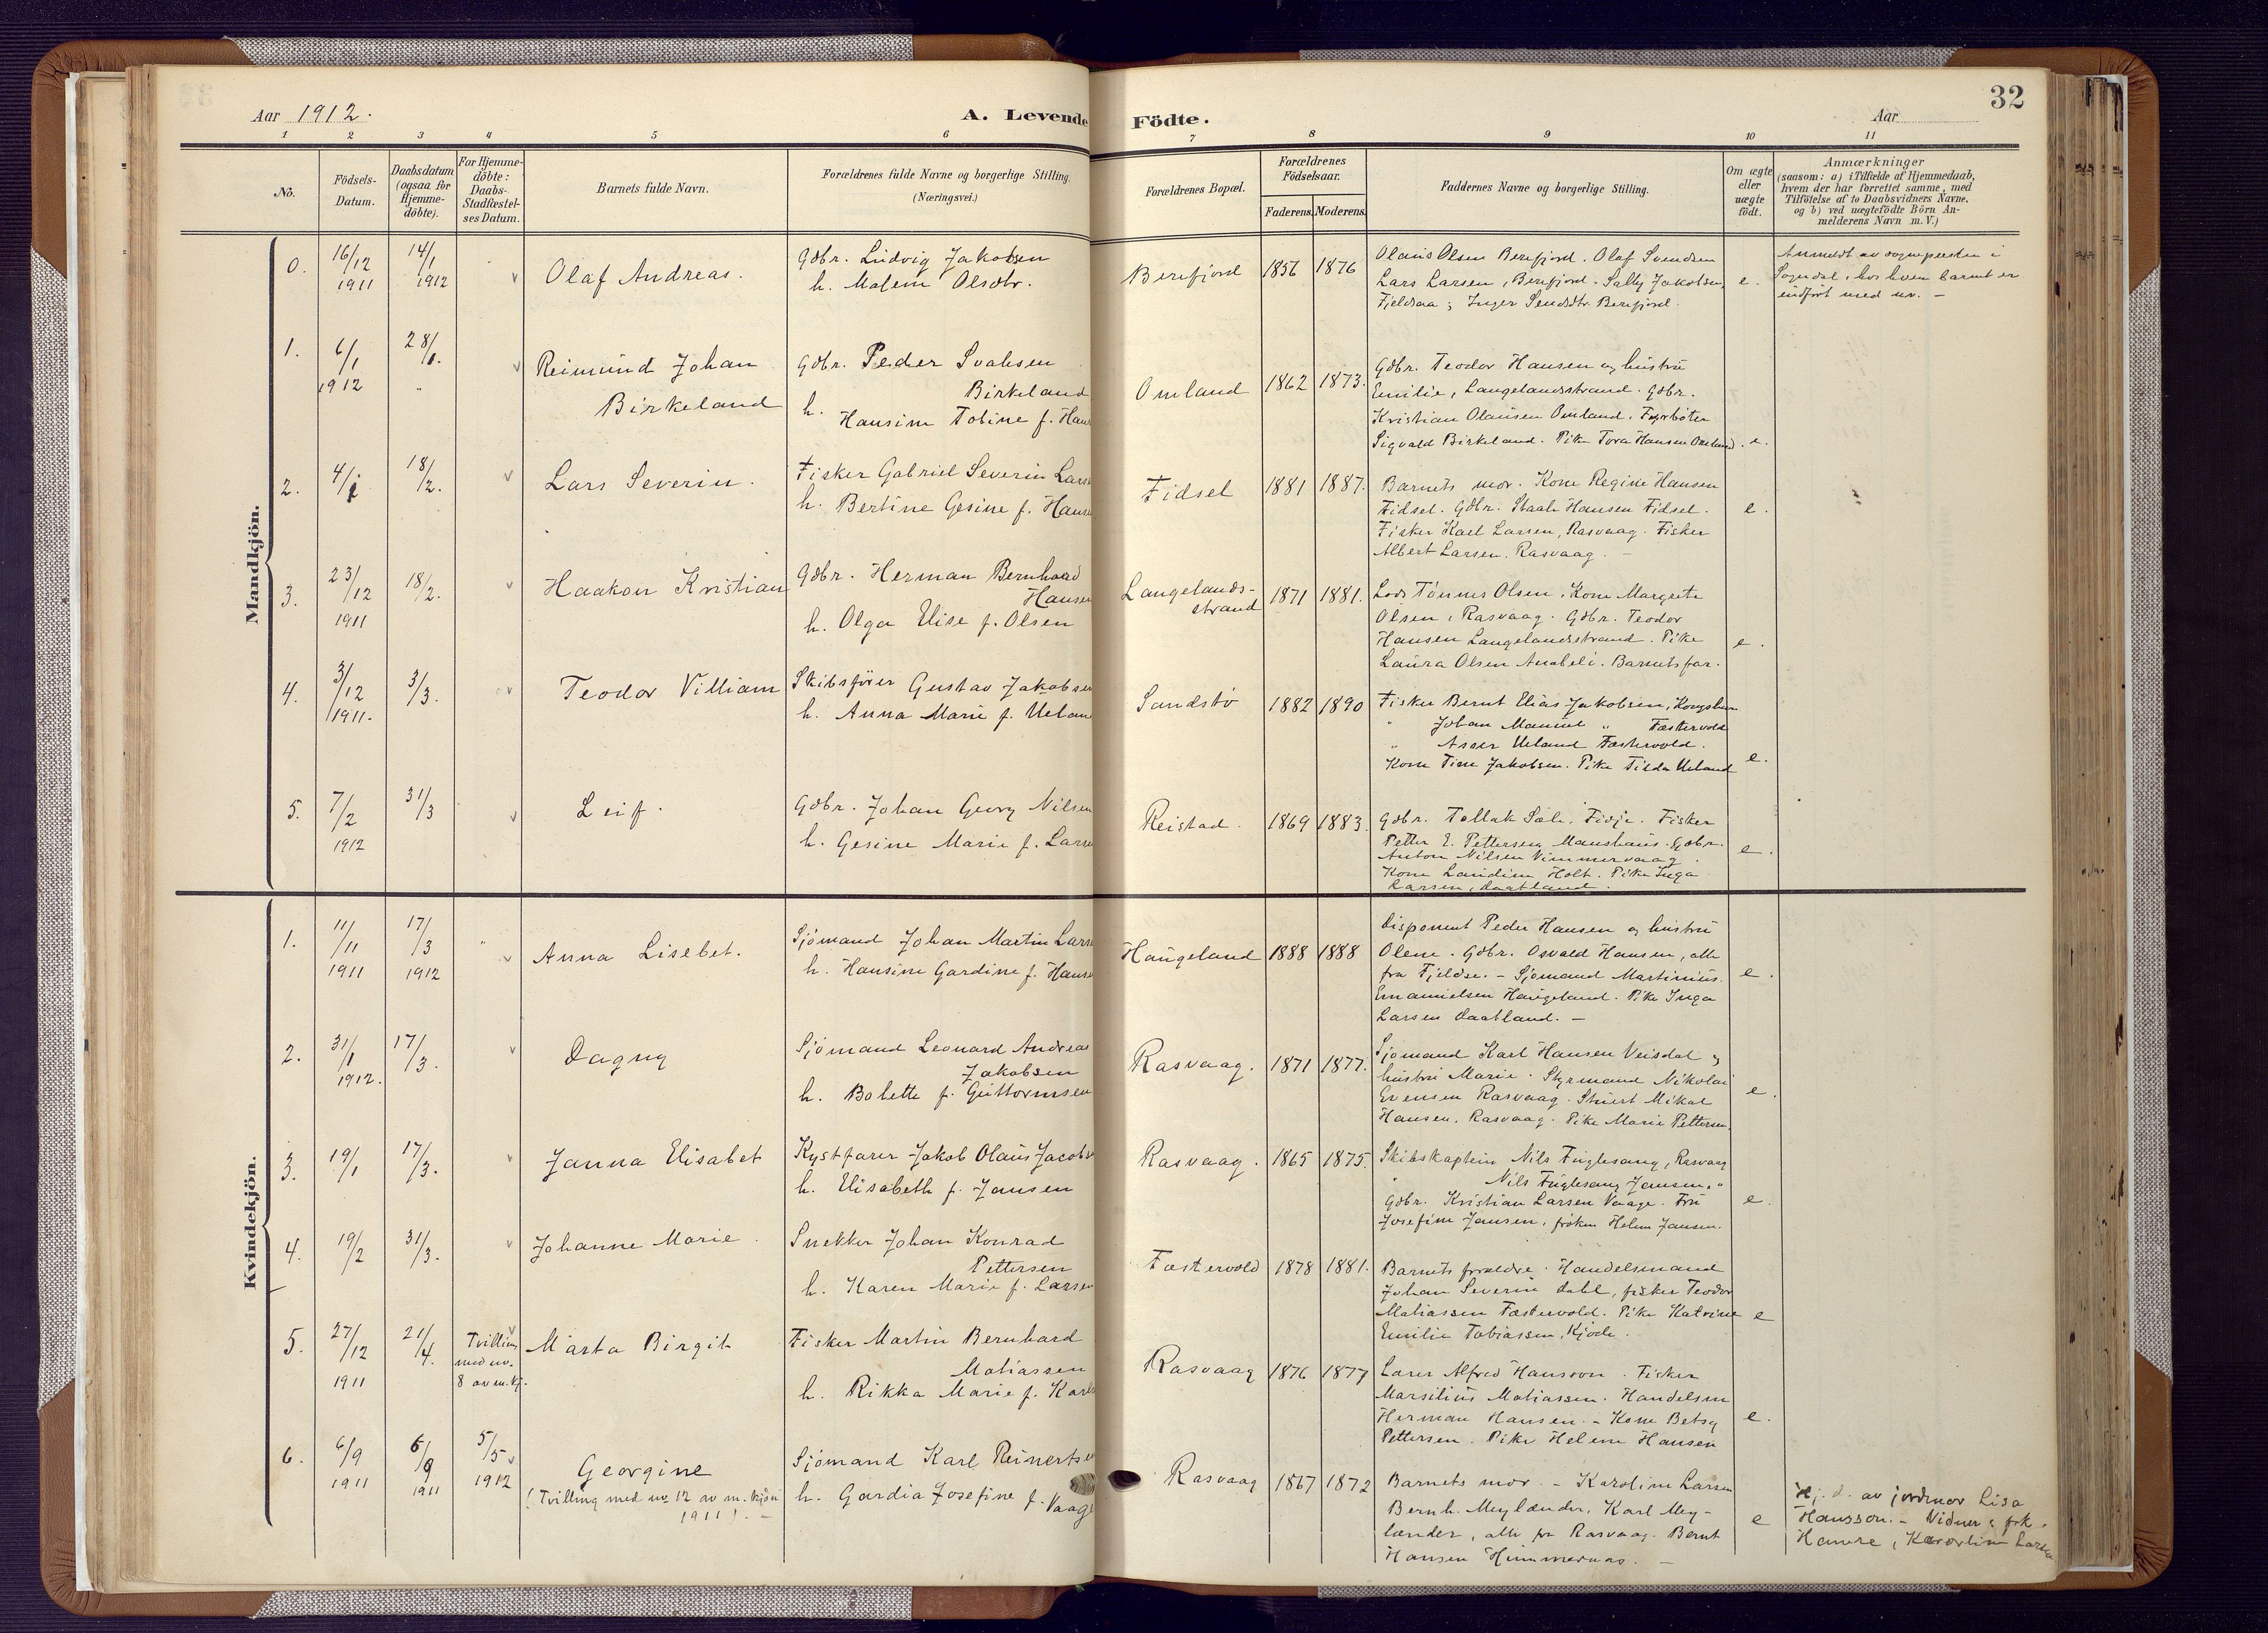 32
Aar 1912.
A. Levende Födte.
Aar
1 2 3 4 5 6 7 8 9 10 11
No.
Födsels-Datum.
Daabsdatum (ogsaa for Hjemme-döbte).
For Hjemme-döbte: Daabs-Stadfæstel-ses Datum.
Barnets fulde Navn.
Forældrenes fulde Navne og borgerlige Stilling.
(Næringsvei.)
Forældrenes Bopæl.
Forældrenes Födselsaar.
Faderens. Moderens.
Faddernes Navne og borgerlige Stilling.
Om ægte eller uægte födt.
Anmærkninger
(saasom: a) i Tilfælde af Hjemmedaab,
hvem der har forrettet samme, med
Tilföielse af to Daabsvidners Navne.
og b) ved uægtefödte Börn An-
melderens Navn m. V.)
Mandkjön.
0. 16/12 1911 14/1 1912 Olaf Andreas.
Gdbr. Ludvig Jakobsen
h. Malene Olsdtr.
Berefjord 1856 1876
Olaus Olsen Berefjord. Olaf Svendsen
Lars Larsen, Berefjord. Sally Jakobsen,
Fjeldsaa; Inger Sendsdtr. Berefjord.
e.
Anmeldt av sognepresten i
Sogndal, hos hvem barnet er
indført med nr. –
1. 6/1 1912 28/1. Reimund Johan
Birkeland
Gdbr. Peder Svalesen
Birkeland
h. Hansine Tobine f. Hans
Omland 1862 1873.
Gdbr. Teodor Hansen og hustru
Emilie, Langelandsstrand. Gdbr.
Kristian Olausen Omland. Fyrbøter
Sigvald Birkeland. Pike Tora Hansen Omland. e.
2. 4/1 18/2. Lars Severin.
Fisker Gabriel Severin Lars
h. Bertine Gesine f. Hanse
Fidsel 1881 1887.
Barnets mor. Kone Regine Hansen
Fidsel. Gdbr. Staale Hansen Fidsel. e.
Fisker Karl Larsen, Rasvaag. Fisker
Albert Larsen. Rasvaag. –
3. 23/12 1911 18/2. Haakon Kristian
Gdbr. Herman Bernhard
Hansen
h. Olga Elise f. Olsen
Langelands-
strand 1871 1881.
Lods Tönnes Olsen. Kone Margrete
Olsen, Rasvaag. Gdbr. Teodor
Hansen Langelandsstrand. Pike e.
Laura Olsen Anabeli. Barnets far.
4. 3/12 1911. 3/3. Teodor Villiam
Skibsfører Gustav Jakobsen
h. Anna Marie f. Uelan
Sandstö 1882 1890
Fisker Bernt Elias Jakobsen,
" Johan Manne " Fæstervold
" Asser Ueland Fæstervold.
Kone Tine Jakobsen. Pike Tilda Ueland e.
5. 7/2 1912 31/3 Leif.
Gdbr. Johan Georg Nilsen
h. Gesine Marie f. Larse
Reistad. 1869 1883.
Gdbr. Tollak Sæli. Fidje. Fisker
Petter E. Pettersen Maushaus. Gdbr. e.
Anton Nilsen Vimmervaag.
Kone Landine Holt. Pike Inga
Larsen, Daatland.
Kvindekjön.
1. 11/11 1911 17/3 1912 Anna Lisebet.
Sjömand Johan Martin Lars
h. Hansine Gardine f. Hanse
Haugeland 1888 1888
Disponent Peder Hansen og hustru
Olene. Gdbr. Osvald Hansen, alle
fra Fjeldse. – Sjømand Martinius e.
Emanuelsen Haugeland. Pike Inga
Larsen Daatland. –
2. 31/1 1912. 17/3. Dagny
Sjömand Leonard Andreas
Jakobsen
h. Bolette f. Guttormsen
Rasvaag. 1871 1877.
Sjømand Karl Hansen Veisdal og
hustru Marie. Styrmand Nikolai
Evensen Rasvaag. Stuert Mikal e.
Hansen, Rasvaag. Pike Marie Pettersen.
3. 19/1 17/3. Janna Elisabet
Kystfarer Jakob Olaus Jacobs
h. Elisabeth f. Jansen
Rasvaag. 1865 1875.
Skibskaptein Nils Fuglesang, Rasvaag
" Nils Fuglesang Jansen. "
Gdbr. Kristian Larsen Vaage. Fru e.
Josefine Jansen, frøken Helene Jansen.
4. 19/2 31/3. Johanne Marie.
Snekker Johan Konrad
Pettersen
h. Karen Marie f. Larsen
Fæstervold 1878 1881.
Barnets forældre. Handelsmand
Johan Severin Dahl, fisker Teodor
Matiassen Fæstervold. Pike Katrine e
Emilie Tobiassen, Kjøde.
5. 27/12 1911 21/4. Tvilling med nr. 8 av m.kj. Marta Birgit
Fisker Martin Bernhard
Matiassen
h. Rikka Marie f. Karls
Rasvaag 1876 1877
Lærer Alfred Hansson. Fisker
Marsilius Matiassen. Handelsm
Herman Hansen. – Kone Betsy e.
Pettersen. Pike Helene Hansen
6. 6/9 1911 6/9 1911 5/5 1912 Georgine
(Tvilling med nr. 12 av m. kjön
1911). –
Sjömand Karl Reinertsen
h. Gardia Josefine f. Vaage
Rasvaag 1867 1872
Barnets mor. – Karoline Larsen
Bernh. Meylænder, Karl Mey-
lænder, alle fra Rasvaag. Bernt e
Hansen Hummernæs. –
Hj. d. av jordmor Lisa
Hansson. – Vidner: frk.
Hamre, Karoline Larsen